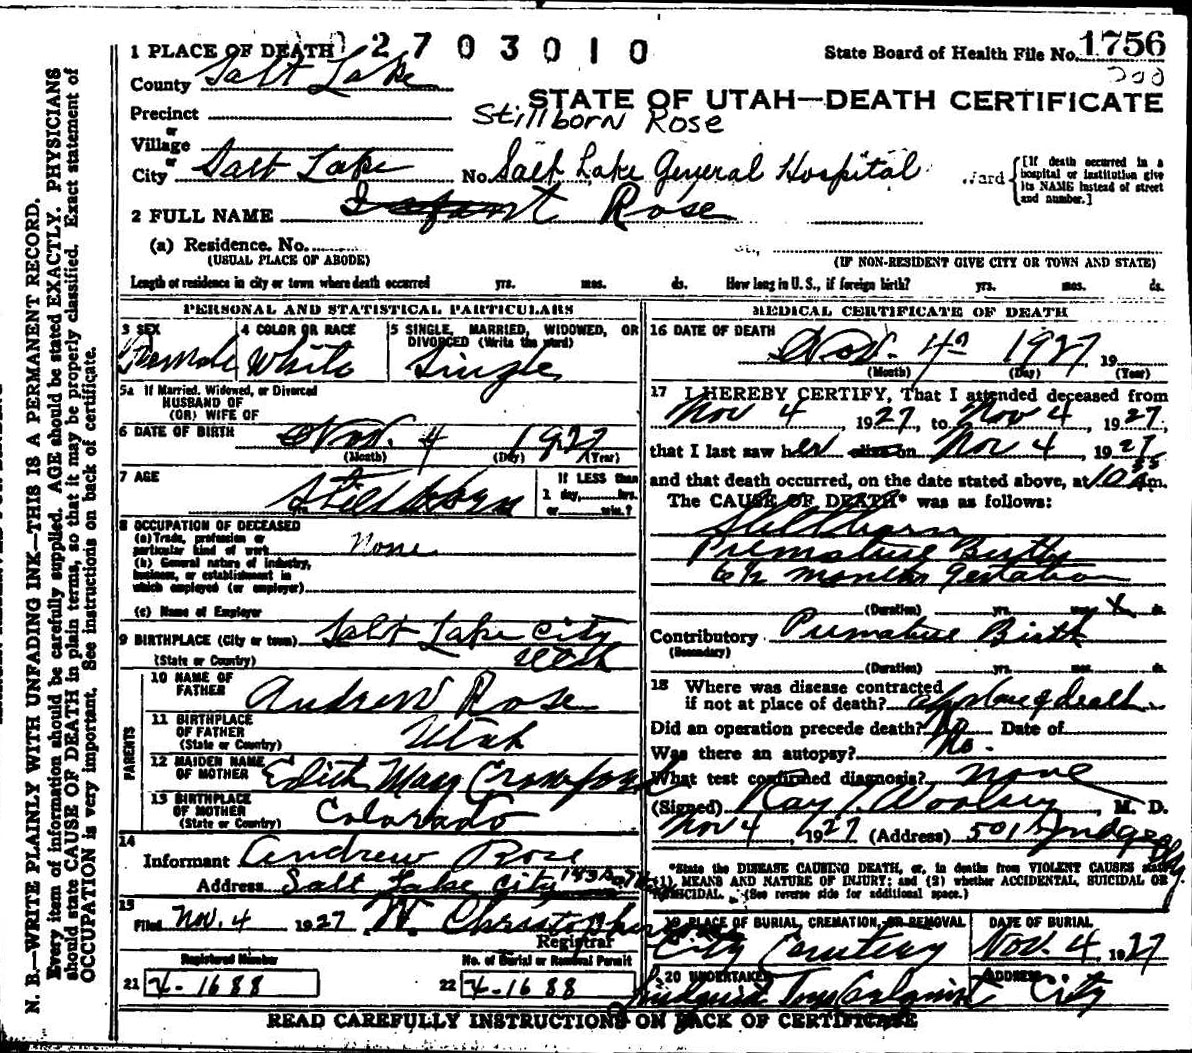 1 PLACE OF DEATH 02703010 State Board of Health File No. 1756
County Salt Lake
STATE OF UTAH—DEATH CERTIFICATE
Precinct Stillborn Rose
or
Village
or
City Salt Lake No. Salt Lake General Hospital Ward
[If death occurred in a
hospital or institution give
its NAME instead of street
and number.]
2 FULL NAME Infant Rose
(a) Residence. No. St.,
(USUAL PLACE OF ABODE) (IF NON-RESIDENT GIVE CITY OR TOWN AND STATE)
Length of residence in city or town where death occurred yrs. mos. ds. How long in U. S., if foreign birth? yrs. mos. ds.
PERSONAL AND STATISTICAL PARTICULARS
3 SEX 4 COLOR OR RACE 5 SINGLE, MARRIED, WIDOWED, OR
DIVORCED (Write the word)
Female White Single
5a If Married, Widowed, or Divorced
HUSBAND OF
(OR) WIFE OF
6 DATE OF BIRTH Nov. 4 1927
(Month) (Day) (Year)
7 AGE Stillborn
If LESS than
1 day, hrs.
or min.?
8 OCCUPATION OF DECEASED
(a) Trade, profession or
particular kind of work None
(b) General nature of industry,
business, or establishment in
which employed (or employer)
(c) Name of Employer
9 BIRTHPLACE (City or town) Salt Lake City
(State or Country) Utah
PARENTS
10 NAME OF
FATHER Andrew Rose
11 BIRTHPLACE
OF FATHER
(State or Country) Utah
12 MAIDEN NAME
OF MOTHER Edith Mary Crawford
13 BIRTHPLACE
OF MOTHER
(State or Country) Colorado
14
Informant Andrew Rose
Address Salt Lake City
15
Filed Nov. 4 1927 W. Christopherson
Registrar
Registered Number No. of Burial or Removal Permit
21 4-1688 22 4-1688
MEDICAL CERTIFICATE OF DEATH
16 DATE OF DEATH
Nov. 4th 1927 19
(Month) (Day) (Year)
17 I HEREBY CERTIFY, That I attended deceased from
Nov 4, 1927, to Nov 4, 1927,
that I last saw her alive on Nov 4, 1927
and that death occurred, on the date stated above, at 10 m.
The CAUSE OF DEATH* was as follows:
Stillborn
Premature Birth
6 1/2 months gestation
(Duration) yrs. mos. ds.
Contributory Premature Birth
(Secondary)
(Duration) yrs. mos. ds.
18 Where was disease contracted
if not at place of death? at place of death
Did an operation precede death? No Date of
Was there an autopsy? No.
What test confirmed diagnosis? none
(Signed) Ray T. Woolsey, M. D.
Nov 4, 1927 (Address) 501 Judge Bldg.
*State the DISEASE CAUSING DEATH, or, in deaths from VIOLENT CAUSES state
(1), MEANS AND NATURE OF INJURY; and (2) whether ACCIDENTAL, SUICIDAL OR
HOMICIDAL. (See reverse side for additional space.)
19 PLACE OF BURIAL, CREMATION, OR REMOVAL DATE OF BURIAL
City Cemetery Nov. 4 1927
20 UNDERTAKER ADDRESS
City
READ CAREFULLY INSTRUCTIONS ON BACK OF CERTIFICATE
N. B.—WRITE PLAINLY WITH UNFADING INK—THIS IS A PERMANENT RECORD.
Every item of information should be carefully supplied. AGE should be stated EXACTLY. PHYSICIANS
should state CAUSE OF DEATH in plain terms, so that it may be properly classified. Exact statement of
OCCUPATION is very important. See instructions on back of certificate.